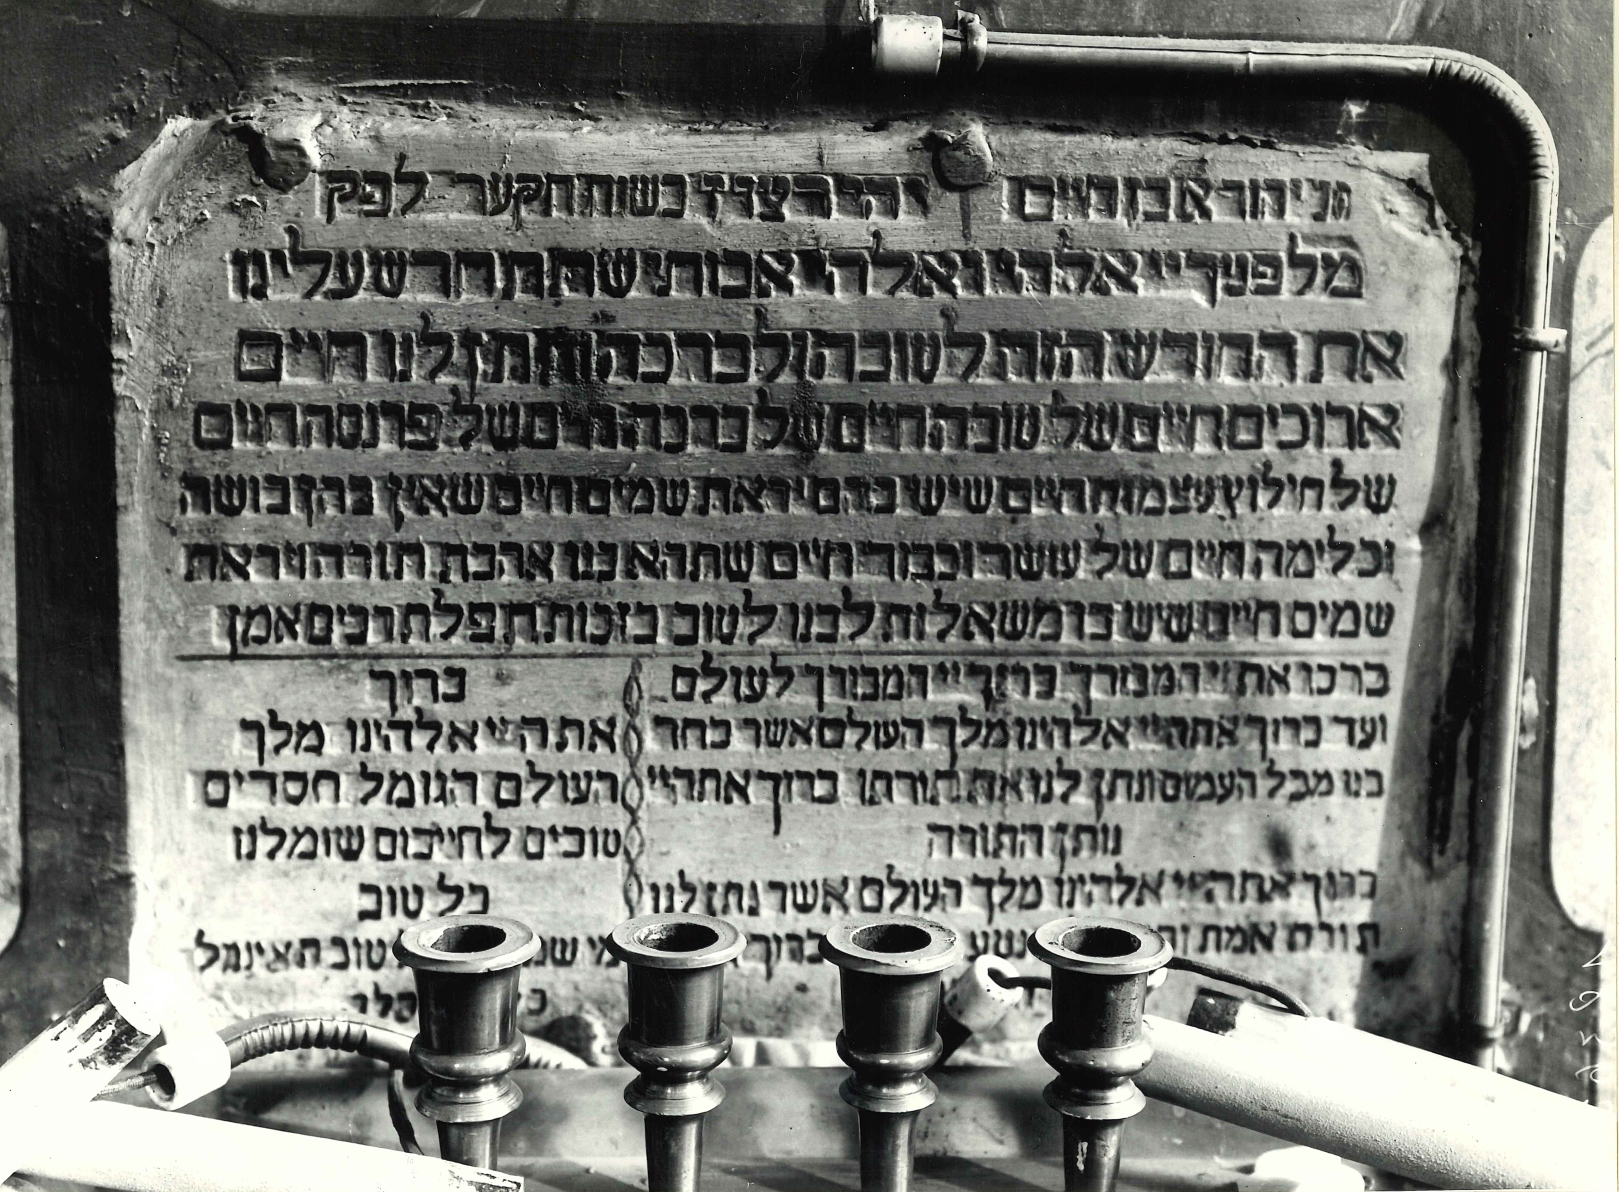 יהי רצון לפק
מלפניך יי אלהי ואלהי אבותי שתתחדש עלינו
את החודש הזה לטובה ולברכה ותתן לנו חיים
ארוכים חיים של טובה חיים של ברכה חיים של פרנסה חיים
של חילוץ עצמות חיים שיש בהם יראת שמים חיים שאין בהן בושה
וכלימה חיים של עושר וכבוד חיים שתהא בנו אהבת תורה ויראת
שמים חיים שיש בו משאלות לבנו לטוב בזכות תפלת רבים אמן
ברכו את יי המבורך ברוך יי המבורך לעולם
ועד ברוך אתה יי אלהינו מלך העולם אשר בחר
בנו מכל העמים ונתן לנו את תורתו ברוך אתה יי
נותן התורה
ברוך אתה יי אלהינו מלך העולם אשר נתן לנו
תורת אמת נטע ברוך
ברוך
אתה יי אלהינו מלך
העולם הגומל חסדים
טובים לחייבים שגמלנו
כל טוב
מי טוב